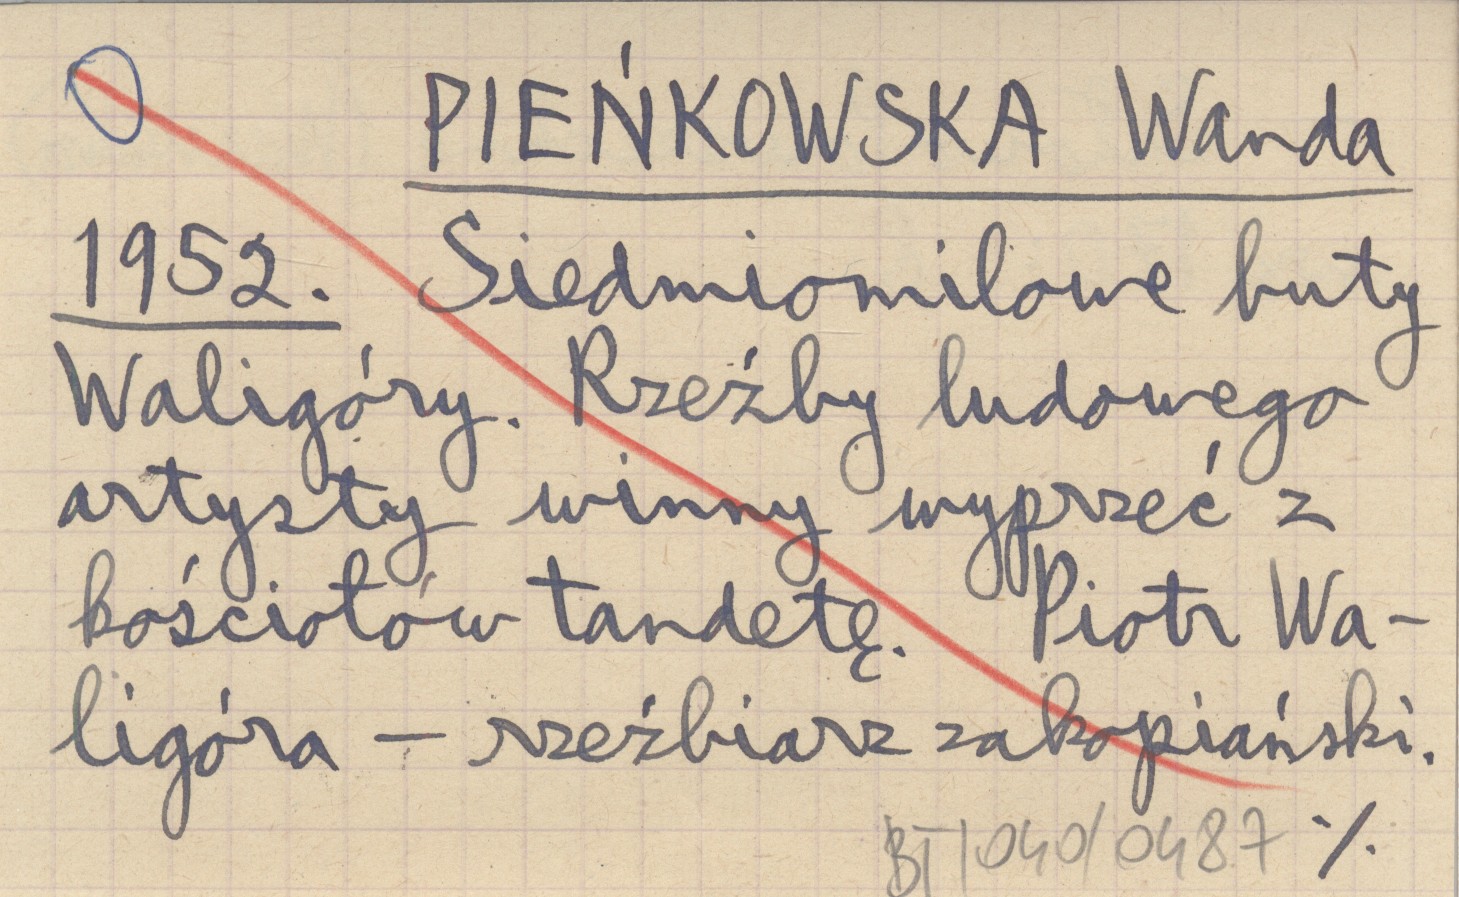 PIEŃKOWSKA Wanda
1952. Siedmiomilowe buty
Waligóry. Rzeźby ludowego
artysty winny wyprzeć z
kościołów tandetę. Piotr Wa-
ligóra – rzeźbiarz zakopiański.
BT/040/0487 ./.